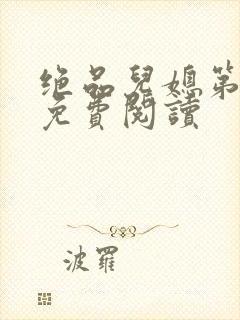 绝品兒媳第
免費閱讀
波羅